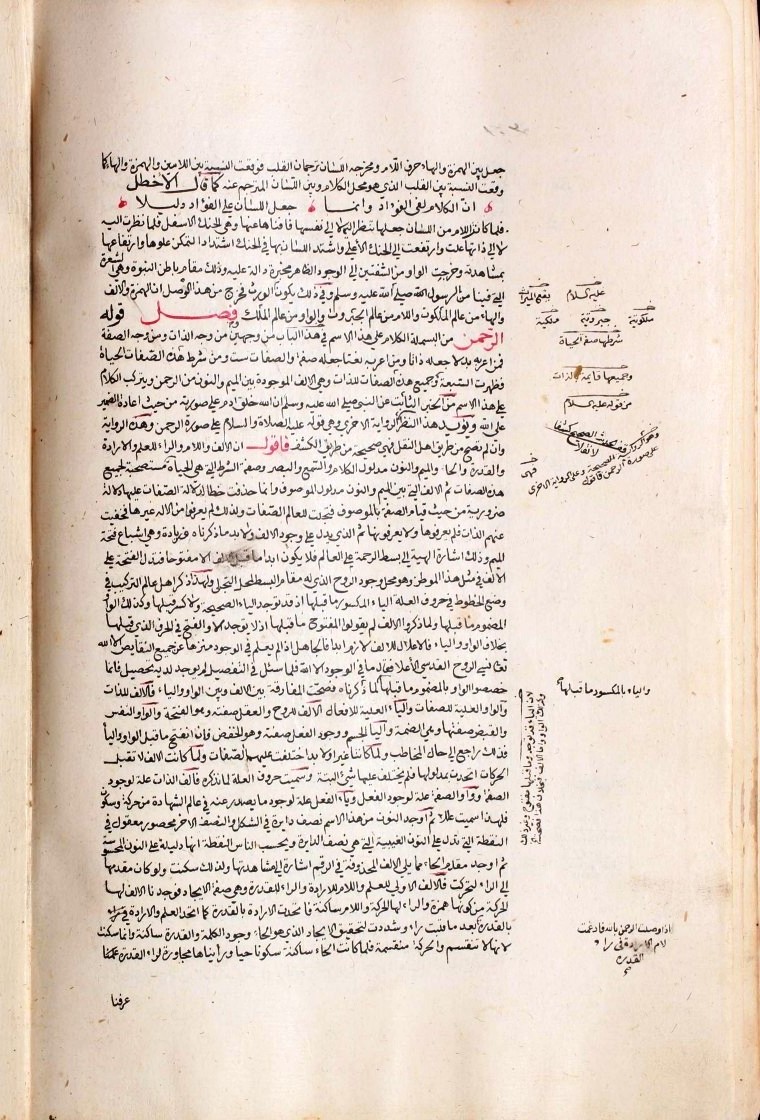 جعل بين الهمزة والهاء حرف اللام ومخرجه اللسان ترجمان القلب فوقعت النسبة بين اللامين والهمزة والهاء كما
وقعت النسبة بين القلب الذي هو محل الكلام وبين اللسان المترجم عنه كما قال الاخطل
ان الكلام لفي الفؤاد وانما جعل اللسان على الفؤاد دليلا
فلما كان اللام من اللسان جعلها تنظر اليه لا الى نفسها فافناها عنها وهي الحنك الاسفل فلما نظرت اليه
لا الى ذاتها علت وارتفعت الى الحنك الاعلى واشتد اللسان بها في الحنك اشتدادا لتمكن علوها وارتفاعها
بمشاهدته وخرجت الواو من الشفتين الى الوجود الظاهر مخبرة دالة عليه وذلك مقام باطن النبوة وهي الشعرة
التي فينا من الرسول صلى الله عليه وسلم وفي ذلك يكون الورث فخرج من هذا الوصل ان الهمزة والالف
والهاء من عالم الملكوت واللام من عالم الجبروت والواو من عالم الملك فصل قوله
الرحمن من البسملة الكلام على هذا الاسم في هذا الباب من وجهين من وجه الذات ومن وجه الصفة
فمن اعربه بدلا جعله ذاتا ومن اعربه نعتا جعله صفة والصفات ست ومن شرط هذه الصفات الحياة
فظهرت السبعة وجميع هذه الصفات للذات وهي الالف الموجودة بين الميم والنون من الرحمن ويتركب الكلام
على هذا الاسم من الخبر الثابت عن النبي صلى الله عليه وسلم ان الله خلق ادم على صورته من حيث اعادة الضمير
على الله ويؤيد هذا النظر الرواية الاخرى وهي قوله عليه الصلاة والسلام على صورة الرحمن وهذه الرواية
وان لم تصح من طريق اهل النقل فهي صحيحة من طريق الكشف فاقول ان الالف واللام والراء للعلم والارادة
والقدرة والحاء والميم والنون مدلول الكلام والسمع والبصر وصفة الشرط التي هي الحياة مستصحبة لجميع
هذه الصفات ثم الالف التي بين الميم والنون مدلول الموصوف وانما حذفت خطا لدلالة الصفات عليها دلالة
ضرورية من حيث قيام الصفة بالموصوف فتجلت للعالم الصفات ولذلك لم يعرفوا من الاله غيرها فخفيت
عنهم الذات فلم يعرفوها ولا يعرفونها ثم الذي يدل على وجود الالف ولا بد ما ذكرناه وزيادة وهي اشباع فتحة
الميم وذلك اشارة الهية الى بسط الرحمة على العالم فلا يكون ابدا ما قبل الالف الا مفتوحا فتدل الفتحة على
الالف في مثل هذا الموطن وهو محل وجود الروح الذي له مقام البسط لمحل التجلي ولهذا ذكر اهل عالم التركيب في
وضع الخطوط في حروف العلة الياء المكسور ما قبلها اذ قد توجد الياء الصحيحة ولا كسر قبلها وكذلك الواو
المضموم ما قبلها ولما ذكروا الالف لم يقولوا المفتوح ما قبلها اذ لا يوجد الا والفتح في الحرف الذي قبلها
بخلاف الواو والياء فالاعتلال للالف لازم ابدا فالجاهل اذا لم يعلم في الوجود منزها عن جميع النقايص الا الله
تعالى نسي الروح القدسي الاعلى فقال ما في الوجود الا الله فلما سئل في التفصيل لم يوجد لديه تحصيل فانما
خصصوا الواو بالمضموم ما قبلها لما ذكرناه فصحت المفارقة بين الالف وبين الواو والياء فالالف للذات
والواو العلية للصفات والياء العلية للافعال الالف للروح والعقل صفته وهو الفتحة والواو النفس
والقبض صفتها وهي الضمة والياء الجسم ووجود الفعل صفته وهو الخفض فان انفتح ما قبل الواو والياء
فذلك راجع الى حال المخاطب ولما كانتا غيرا ولا بد اختلفت عليهما الصفات ولما كانت الالف لا تقبل
الحركات اتحدت بمدلولها فلم يختلف عليها شيء البتة وسميت حروف العلة لما نذكره فالف الذات علة لوجود
الصفة وواو الصفة علة لوجود الفعل وياء الفعل علة لوجود ما يصدر عنه في عالم الشهادة من حركة وسكون
فلهذا سميت عللا ثم اوجد النون من هذا الاسم نصف دايرة في الشكل والنصف الاخر محصور معقول في
النقطة التي تدل على النون الغيبية التي هي نصف الدايرة ويحسب الناس النقطة انها دليلة على النون المحسوسة
ثم اوجد مقدم الحاء مما يلي الالف المحذوفة في الرقم اشارة الى مشاهدتها ولذلك سكنت ولو كان مقدمها
الى الراء لتحركت فالالف الاولى للعلم واللام للارادة والراء للقدرة وهي صفة الايجاد فوجدنا الالف لها
الحركة من كونها همزة والراء لها الحركة واللام ساكنة فاتحدت الارادة بالقدرة كما اتحد العلم والارادة في
بالقدرة بعد ما قلبت راء وشددت لتحقيق الايجاد الذي هو الحاء وجود الكلمة والقدرة ساكنة وانما سكنت
لانها لا تنقسم والحركة منقسمة فلما كانت الحاء ساكنة سكونا حيا ورايناها مجاورة لراء القدرة عرفنا
عرفنا
عليه السلام
ملكوتية جبروتية ملكية
شرطها صفة الحياة
وجميعها قايمة بالذات
من قوله عليه السلام
والياء بالمكسور ما قبلها
اذا وصلت الرحمن بالله فادغمت
لام الارادة في راء
القدرة